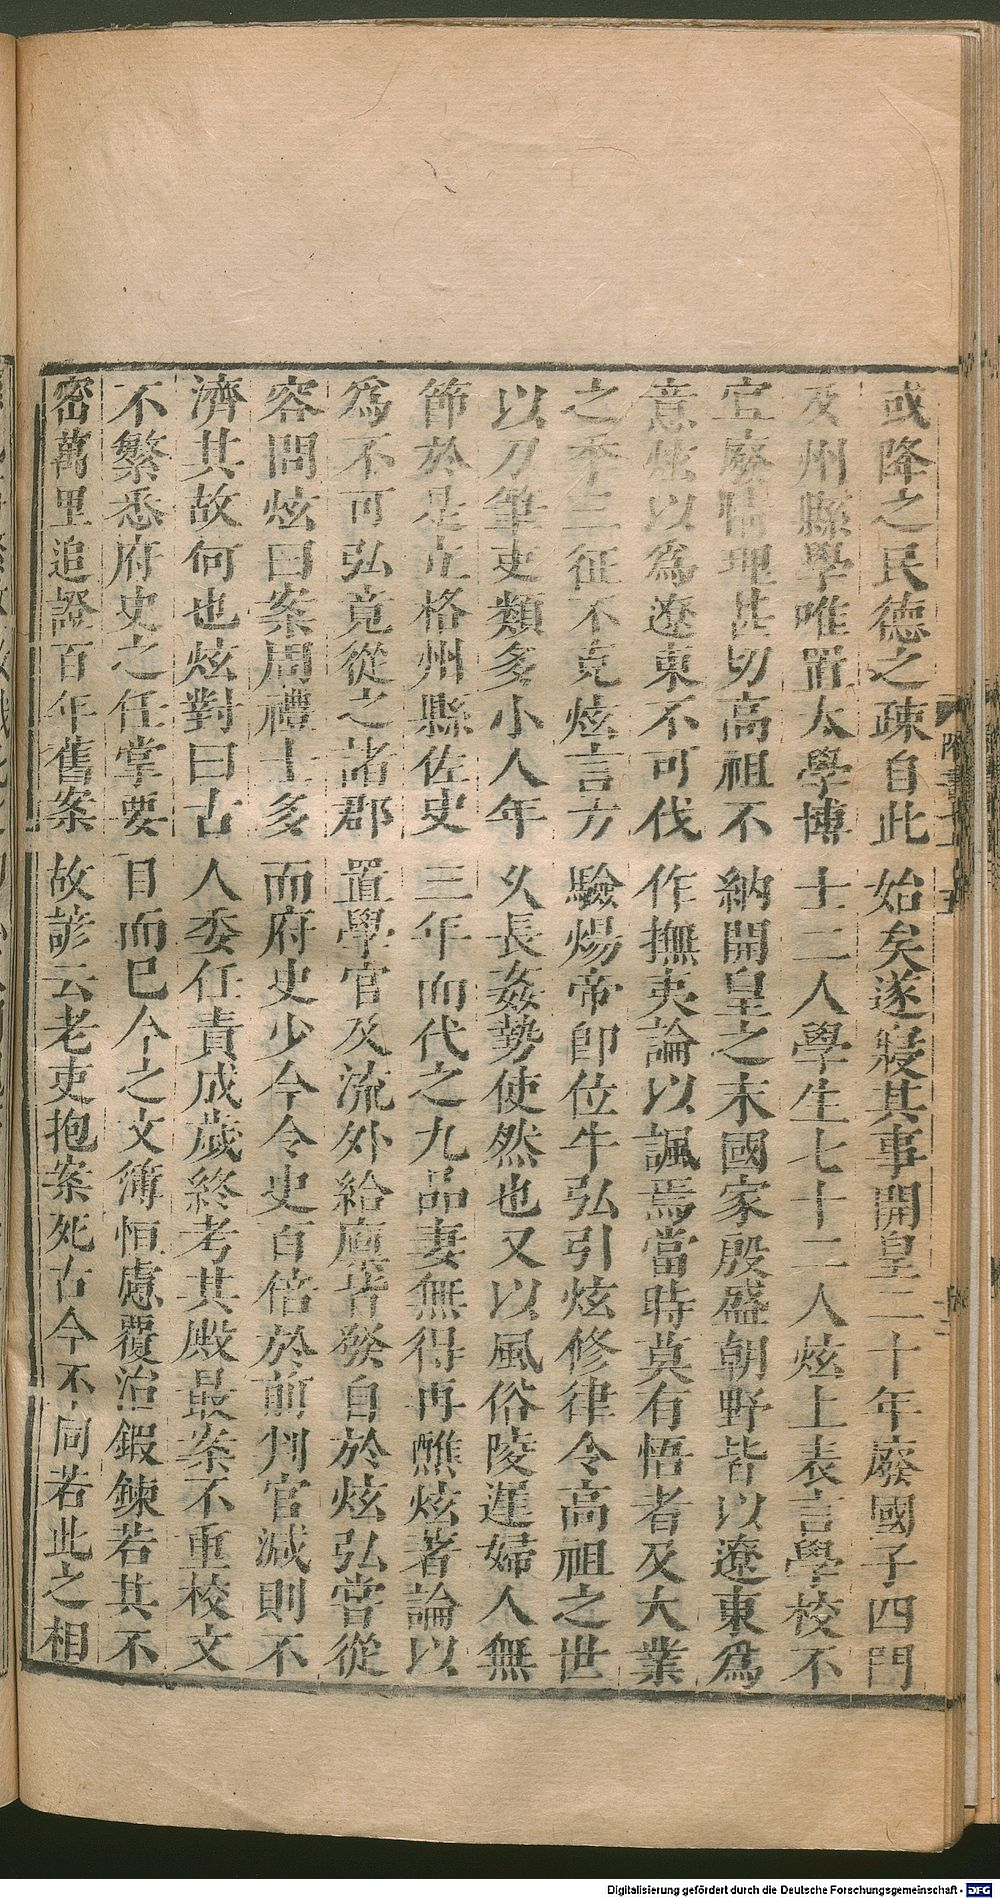 或降之民德之疎自此始矣遂寢其事開皇二十年廢國子四門
及州縣學唯置太學博士二人學生七十二人炫上表言學校不
宜廢情理甚切高祖不納開皇之末國家殷盛朝野皆以遼東爲
意炫以爲遼東不可伐作撫夷論以諷焉當時莫有悟者及大業
之季三征不克炫言方驗煬帝卽位牛弘引炫修律令高祖之世
以刀筆吏類多小人年久長姦勢使然也又以風俗陵遲婦人無
節於是立格州縣佐史三年而代之九品妻無得再醮炫著論以
爲不可弘竟從之諸郡置學官及流外給廩皆發自於炫弘嘗從
容問炫曰案周禮士多而府史少今令史百倍於前判官減則不
濟其故何也炫對曰古人委任責成歲終考其殿最案不重校文
不繁悉府史之任掌要目而已今之文簿恒慮覆治鍜鍊若其不
密萬里追證百年舊案故諺云老吏抱案死古今不同若此之相
Digitalisierung gefördert durch die Deutsche Forschungsgemeinschaft - DFG